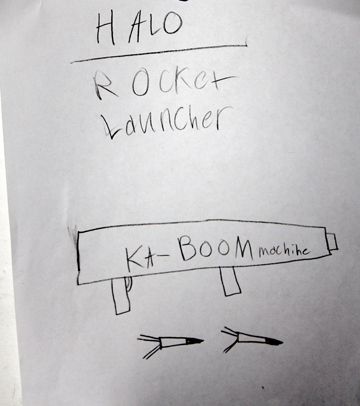 HALO
ROCKet
Launcher
KA-BOOM machine